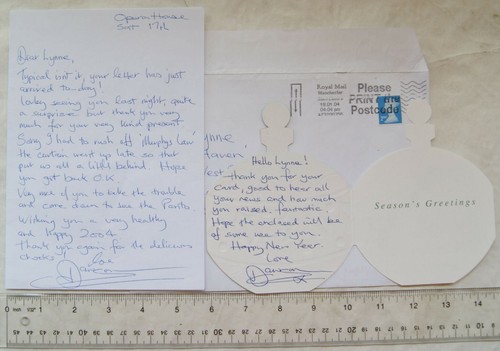 Opera House
Sat 17th
Dear Lynne,
Typical isn't it, your letter has just
arrived to-day!
Lovley seeing you last night, quite
a surprise but thank you very
much for your very kind present.
Sorry I had to rush off 'Murphys Law'
the curtain went up late so that
put us all a little behind. Hope
you got back O.K
Very nice of you to take the trouble
and come down to see the Panto
Wishing you a very healthy
and Happy 2004
Thank you again for the delicious
chocks!
Love
Darren
ynne
Haven
est
Hello Lynne!
Thank you for your
card, good to hear all
your news and how much
you raised, fantastic.
Hope the enclosed will be
of some use to you.
Happy New Year.
Love
Darren
Royal Mail
Manchester
Please
Postcode
Season's Greetings
0 inch 1 2 3 4 5 6 7 8 9 10 11 12 13 14